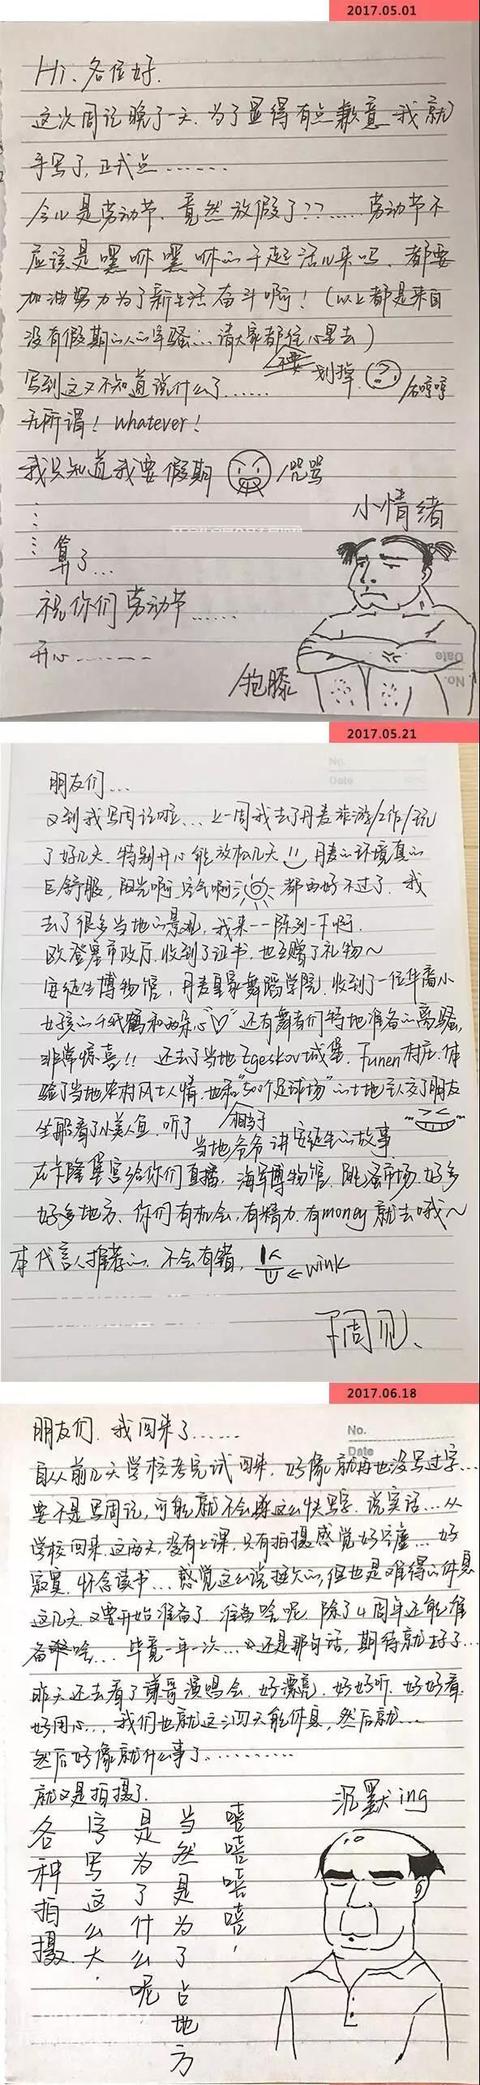 2017.05.01
Hi、各位好.
这次周记晚了一天.为了显得有点歉意.我就
手写了,正式点……
今儿是劳动节.竟然放假了??……劳动节不
应该是嘿咻嘿咻的干起活儿来吗、都要
加油努力为了新生活奋斗啊!(以上都是来自
没有假期的人的牢骚…请大家都往心里去)
不要
划掉.
写到这又不知道说什么了……
/石哼哼
无所谓! whatever!
我只知道我要假期
/咒骂
小情绪
算了…
祝你们劳动节……
开心
/抱膝
Date
No.
2017.05.21
No.
Date
朋友们…
又到我写周记啦…上一周我去了丹麦旅游/工作/玩
了好几天.特别开心能放松几天!! 丹麦的环境真的
巨舒服,阳光啊,空气啊 都再好不过了.我
去了很多当地的景观,我来一一陈列一下啊.
欧登塞市政厅.收到了证书.也互赠了礼物~
安徒生博物馆,丹麦皇家舞蹈学院.收到了一位华裔小
女孩的千纸鹤和两朵心"♡"还有舞者们特地准备的离骚,
非常惊喜!! 还去了当地Egeskov城堡.Funen村庄.体
验了当地农村风土人情.也和"500个足球场"的土地主人交了朋友
相当于
坐船看了小美人鱼.听了当地爷爷讲安徒生的故事
在卡隆堡宫给你们直播.海军博物馆.跳蚤市场.好多
好多地方.你们有机会,有精力.有money就去哦~
本代言人推荐的.不会有错,
←wink
下周见、
2017.06.18
朋友们.我回来了……
No.
Date
自从前几天学校考完试回来,好像就再也没写过字…
要不是写周记,可能就不会这么快写字.说实话…从
学校回来.这两天,没有上课,只有拍摄感觉好空虚…好
寂寞.怀念读书…感觉这么说挺欠的,但也是难得的休息
这几天.又要开始准备了.准备啥呢.除了4周年还能准
备啥…毕竟一年一次…还是那句话,期待就好了…
昨天还去看了谦哥演唱会.好漂亮.好好听.好好看.
好用心…我们也就这三四天能休息,然后就…
然后好像就什么事了…………
就又是拍摄了.
沉默ing
嘻嘻嘻嘻嘻,
当然是为了占地方
是为了什么呢.
字写这么大,
各种拍摄.